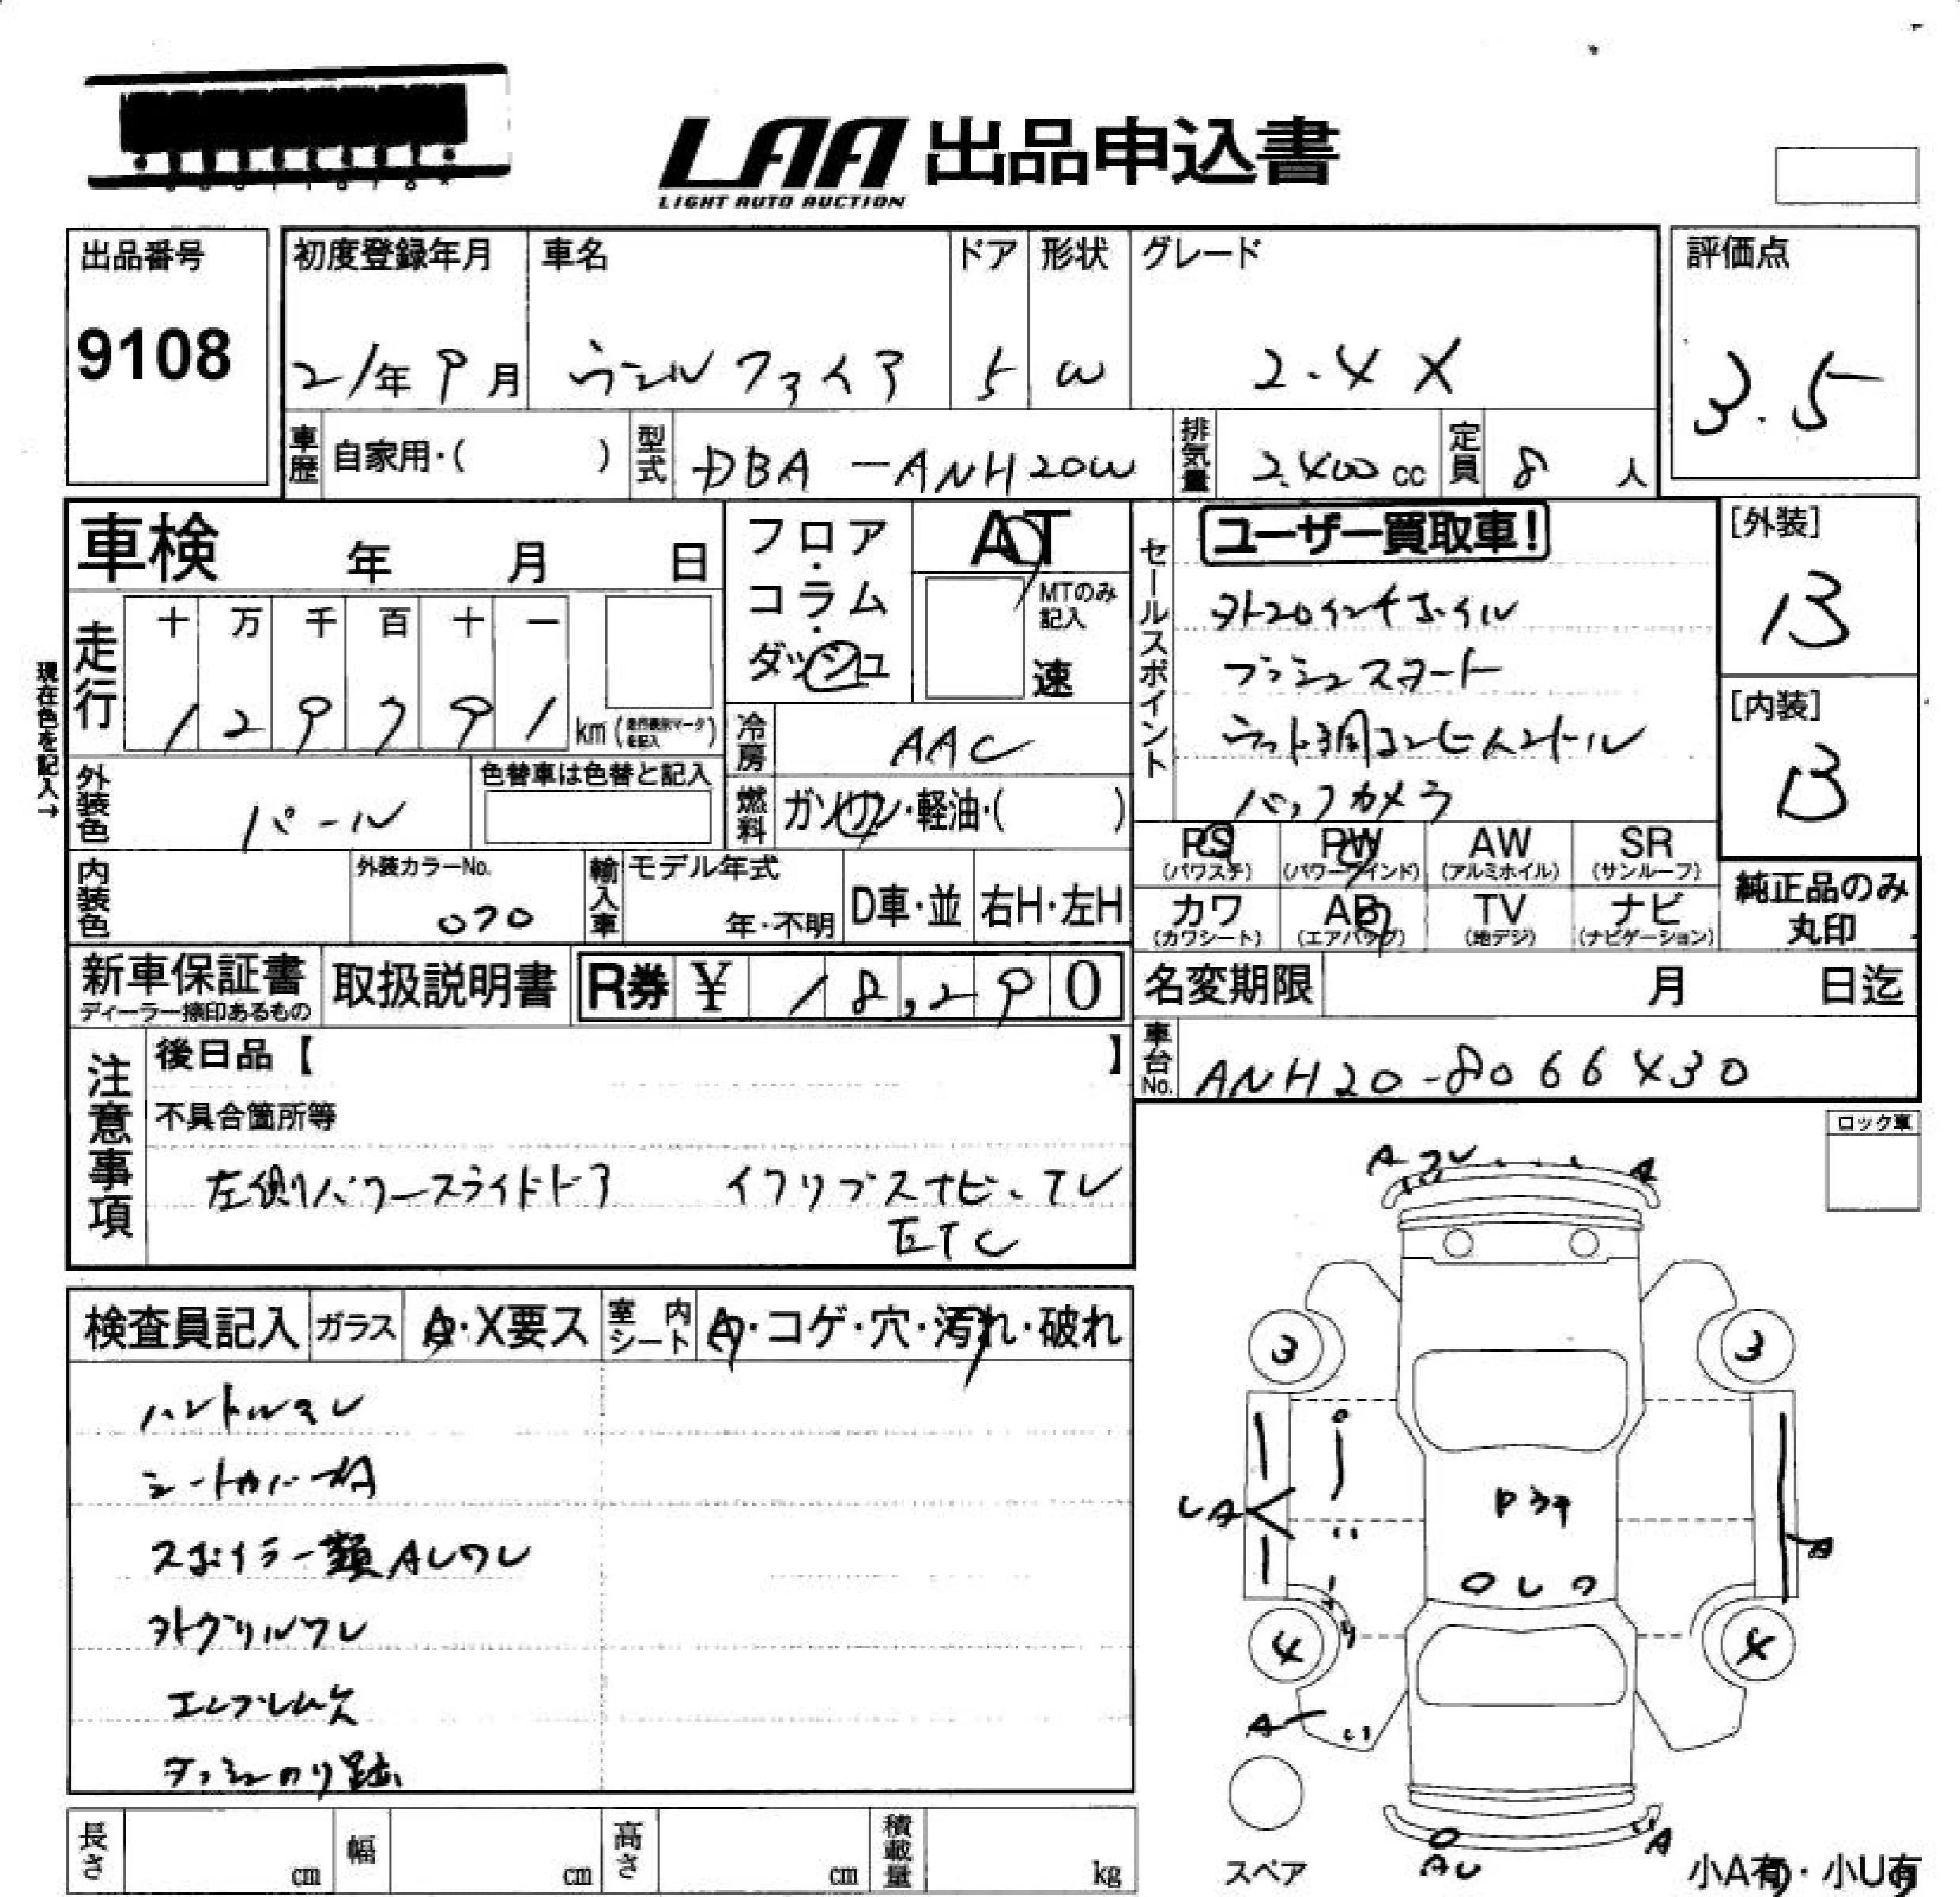 LAA 出品申込書
LIGHT AUTO AUCTION
出品番号
9108
初度登録年月
21年9月
車名
ヴェルファイア
ドア
5
形状
W
グレード
2.4 X
評価点
3.5
車歴
自家用・( )
型式
DBA-ANH20W
排気量
2,400cc
定員
8人
車検 年 月 日
フロア・コラム・ダッシュ
AT
MTのみ記入
速
セールスポイント
ユーザー買取車!
外20インチホイル
プッシュスタート
ウッド調コンビハンドル
バックカメラ
[外装]
B
[内装]
B
現在色を記入→
走行
十 万 千 百 十 一
1 2 9 7 9 1 km
冷房
AAC
外装色
パール
色替車は色替と記入
燃料
ガソリン・軽油・( )
PS (パワステ)
PW (パワーウインド)
AW (アルミホイル)
SR (サンルーフ)
カワ (カワシート)
AB (エアバッグ)
TV (地デジ)
ナビ (ナビゲーション)
純正品のみ丸印
内装色
外装カラーNo.
070
輸入車
モデル年式
年・不明
D車・並
右H・左H
新車保証書
ディーラー捺印あるもの
取扱説明書
R券 ¥ 18,290
名変期限 月 日迄
車台No.
ANH20-8066430
注意事項
後日品【 】
不具合箇所等
左側パワースライドドア イクリプスナビ、テレ
ETC
ロック車
検査員記入
ガラス
A・X要ス
室内シート
A・コゲ・穴・汚れ・破れ
ハンドルスレ
シートカバー付A
スポイラー類AUワレ
外グリルワレ
エンブレム欠
ダッシュのり跡
A ワレ
A
3
3
UA
A
4
4
A
AU
A
スペア
小A有・小U有
長さ cm
幅 cm
高さ cm
積載量 kg